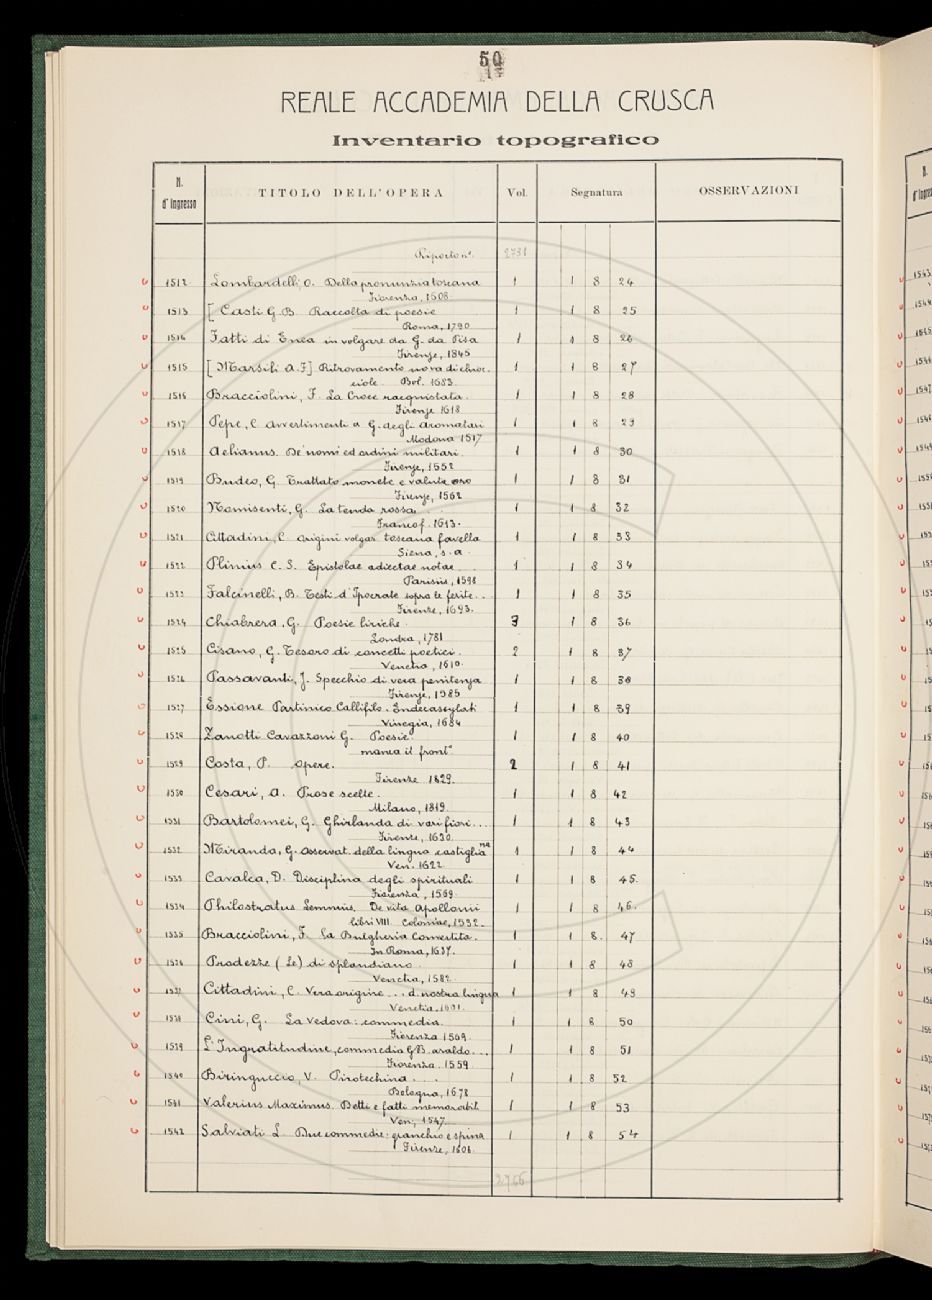 50
REALE ACCADEMIA DELLA CRUSCA
Inventario topografico
N. d'Ingresso TITOLO DELL'OPERA Vol. Segnatura OSSERVAZIONI
Riporto n° 2731
1512 Lombardelli, O. Della pronunzia toscana 1 1 8 24
Fiorenza, 1608.
1513 [Casti G. B. Raccolta di poesie 1 1 8 25
Roma, 1790
1514 Fatti di Enea in volgare da G. da Pisa 1 1 8 26
Firenze, 1845
1515 [Marsili A. F] Ritrovamento nova di chioc. 1 1 8 27
ciole. Bol. 1683.
1516 Bracciolini, F. La Croce racquistata. 1 1 8 28
Firenze 1618
1517 Pepe, C. Avvertimenti a G. degli Aromatari 1 1 8 29
Modona 1517
1518 Aelianus. De' nomi ed ordini militari. 1 1 8 30
Firenze, 1552
1519 Budeo, G. Trattato monete e valuta oro 1 1 8 31
Firenze, 1562
1520 Nomisenti, G. La tenda rossa 1 1 8 32
Francof. 1613.
1521 Cittadini, C. Origini volgar toscana favella 1 1 8 33
Siena, s. a.
1522 Plinius C. S. Epistolae adiectae notae 1 1 8 34
Parisiis, 1598
1523 Falcinelli, B. Testi d'Ipocrate sopra le ferite.. 1 1 8 35
Firenze, 1693.
1524 Chiabrera, G. Poesie liriche. 3 1 8 36
Londra, 1781
1525 Cisano, G. Tesoro di concetti poetici. 2 1 8 37
Venetia, 1610.
1526 Passavanti, J. Specchio di vera penitenza 1 1 8 38
Firenze, 1585
1527 Essione Partinico Callifilo. Endecasyllabi 1 1 8 39
Vinegia, 1684
1528 Zanotti Cavazzoni G. Poesie. 1 1 8 40
manca il front°
1529 Costa, P. Opere. 2 1 8 41
Firenze 1829.
1530 Cesari, A. Prose scelte. 1 1 8 42
Milano, 1819.
1531 Bartolomei, G. Ghirlanda di vari fiori.... 1 1 8 43
Firenze, 1630.
1532 Miranda, G. Osservat. della lingua castiglia na 1 1 8 44
Ven. 1622.
1533 Cavalca, D. Disciplina degli spirituali 1 1 8 45.
Fiorenza, 1569.
1534 Philostratus Lemnius. De vita Apollonii 1 1 8 46.
libri VIII. Coloniae, 1532.
1535 Bracciolini, F. La Bulgheria Convertita. 1 1 8. 47
In Roma, 1637.
1536 Prodezze (Le) di Splandiano. 1 1 8 48
Venetia, 1582.
1537 Cittadini, C. Vera origine... d. nostra lingua 1 1 8 49
Venetia.
1538 Cini, G. La Vedova: commedia. 1 1 8 50
Fiorenza 1569.
1539 L'Ingratitudine, commedia G.B. Araldo... 1 1 8 51
Fiorenza. 1559.
1540 Biringuccio, V. Pirotechina.... 1 1 8 52
Bologna, 1678
1541 Valerius Maximus. Detti e fatti memorabil. 1 1 8 53
Ven, 1547
1542 Salviati L. Due commedie: granchio e spina 1 1 8 54
Firenze, 1606.
2766
N. d'Ingres
1543
1544